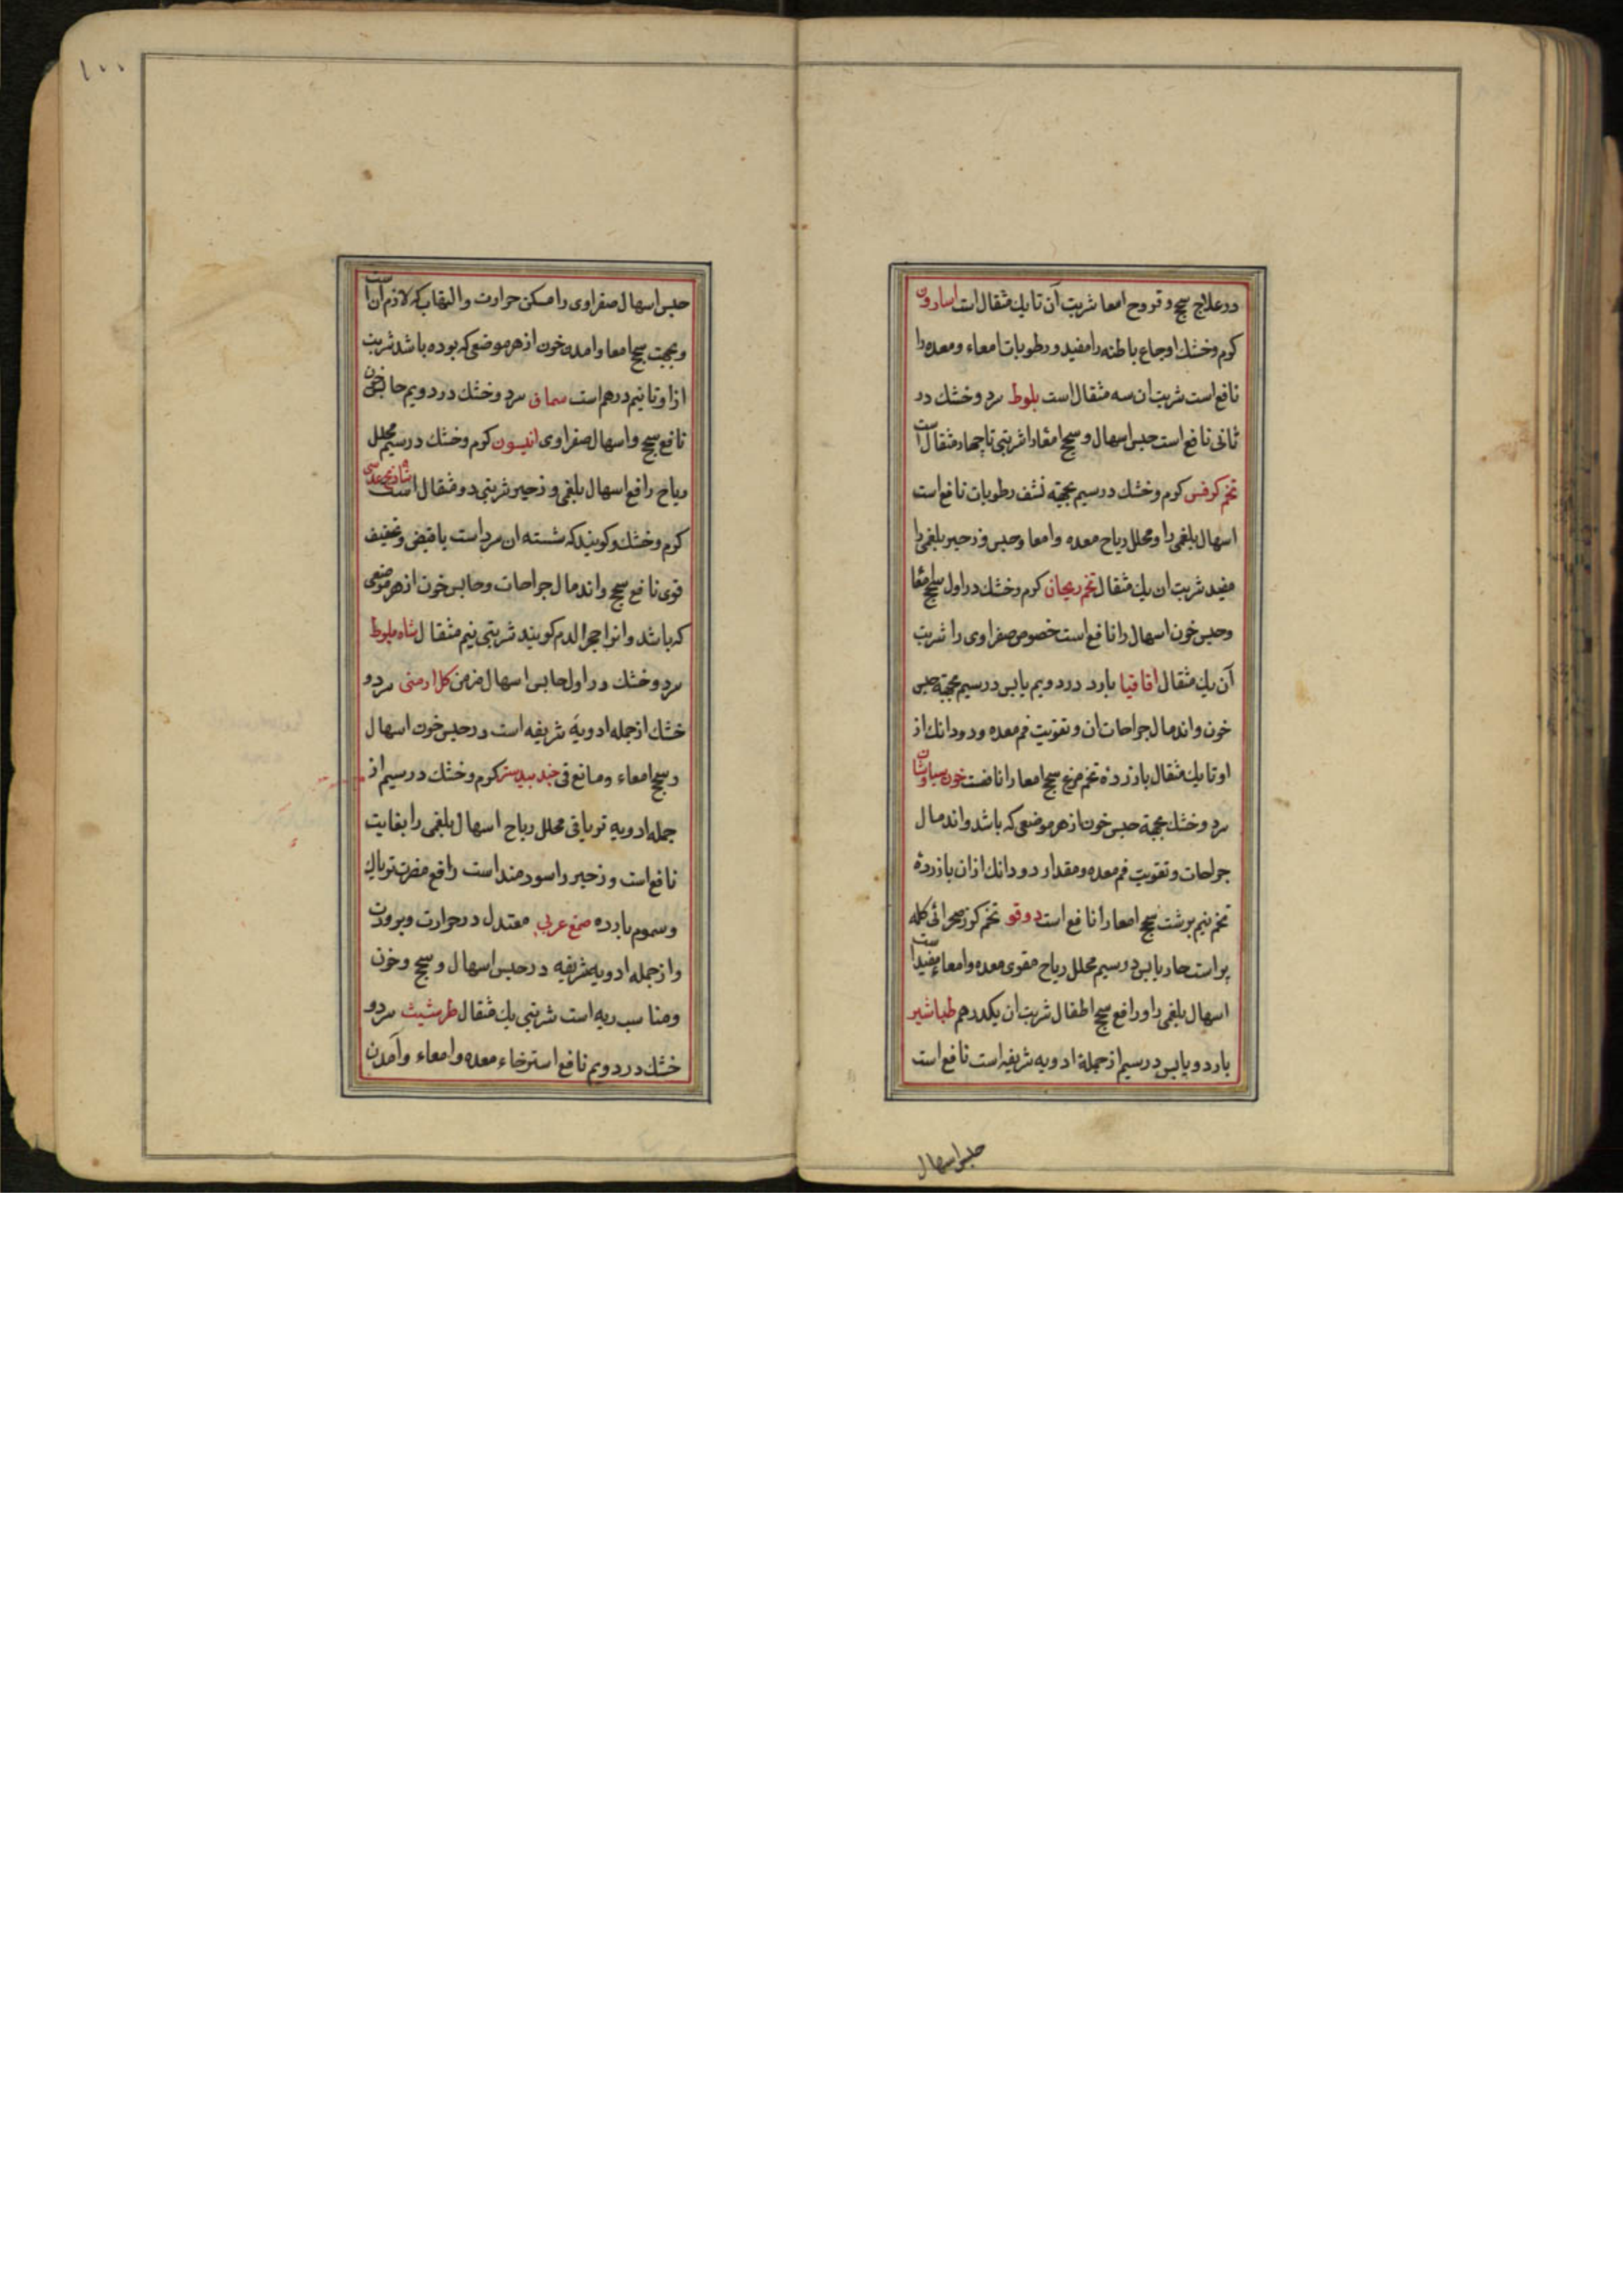 در علاج سحج و قروح امعا شربت آن تا یك مثقال است اسارون
کرم و خشك اوجاع باطنه را مفید و رطوبات امعاء و معده را
نافع است شربت ان سه مثقال است بلوط سرد و خشك در
ثانی نافع است حبس اسهال و سحج امعا را شربتی تا چهار مثقال است
تخم کرفس کرم و خشك در سیم بجهته نشف رطوبات نافع است
اسهال بلغمی را و محلل ریاح معده و امعا و حبس و زحیر بلغمی را
مفید شربت ان یك مثقال تخم ریحان کرم و خشك در اول سحج امعا
و حبس خون اسهال را نافع است خصوص صفراوی را شربت
آن یك مثقال اقاقیا بارد در دویم یابس در سیم بجهته حبس
خون و اندمال جراحات ان و تقویت فم معده و دو دانك از
او تا یك مثقال با زردهٔ تخم مرغ سحج امعا را نافعست خون سیاوشان
سرد و خشك بجهة حبس خون از هر موضعی که باشد و اندمال
جراحات و تقویت فم معده و مقدار دو دانك از ان با زردهٔ
تخم نیم برشت سحج امعا را نافع است دوقو تخم کزر صحرائی کله
پر است حار یابس در سیم محلل ریاح مقوی معده و امعاء مفید است
اسهال بلغمی را و رافع سحج اطفال شربت ان یکدرهم طباشیر
بارد و یابس در سیم از جملة ادویه شریفه است نافع است
حبس اسهال
۱۰۰
حبس اسهال صفراوی را مسکن حرارت و التهاب که لازم آن است
و بجهت سحج امعا و امدن خون از هر موضعی که بوده باشد شربت
از او تا نیم درهم است سماق سرد و خشك در دویم حابس خون
نافع سحج و اسهال صفراوی انیسون کرم و خشك در سیم محلل
ریاح رافع اسهال بلغمی و زحیر شربتی دو مثقال است شادنج عدسی
کرم و خشك و کویند که شسته ان سرد است با قبض و تجفیف
قوی نافع سحج و اندمال جراحات و حابس خون از هر موضعی
که باشد و انرا حجر الدم کویند شربتی نیم مثقال شاه بلوط
سرد و خشك در اول حابس اسهال مزمن کل ارمنی سرد و
خشك از جمله ادویهٔ شریفه است در حبس خون اسهال
و سحج امعاء و مانع قی جند بیدستر کرم و خشك در سیم از
جمله ادویه تریاقی محلل ریاح اسهال بلغمی را بغایت
نافع است و زحیر را سودمند است رافع مضرت تریاك
و سموم بارده صمغ عربی معتدل در حرارت و برودت
و از جمله ادویه شریفه در حبس اسهال و سحج و خون
و مناسب ریه است شربتی یك مثقال طرشیث سرد و
خشك در دویم نافع استرخاء معده و امعاء و آمدن